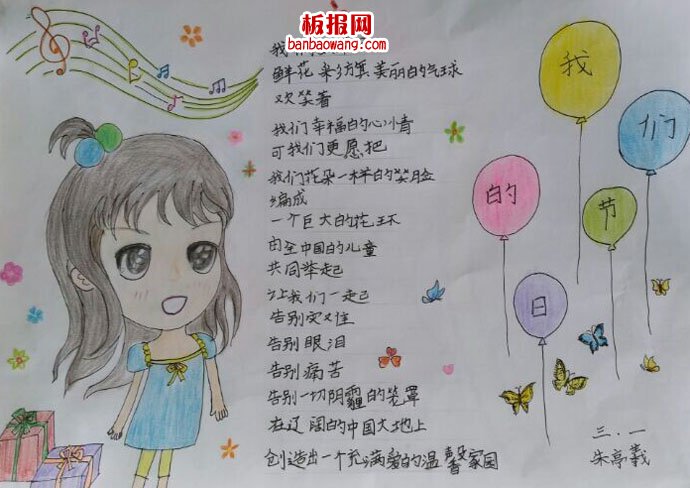 板报网
banbaowang.com
我们
鲜花 彩旗 美丽的气球
欢笑着
我们幸福的心情
可我们更愿把
我们花朵一样的笑脸
编成
一个巨大的花环
由全中国的儿童
共同举起
让我们一起
告别灾难
告别眼泪
告别病苦
告别一切阴霾的笼罩
在辽阔的中国大地上
创造出一个充满爱的温馨家园
我
们
的
节
日
三.一
朱亭羲